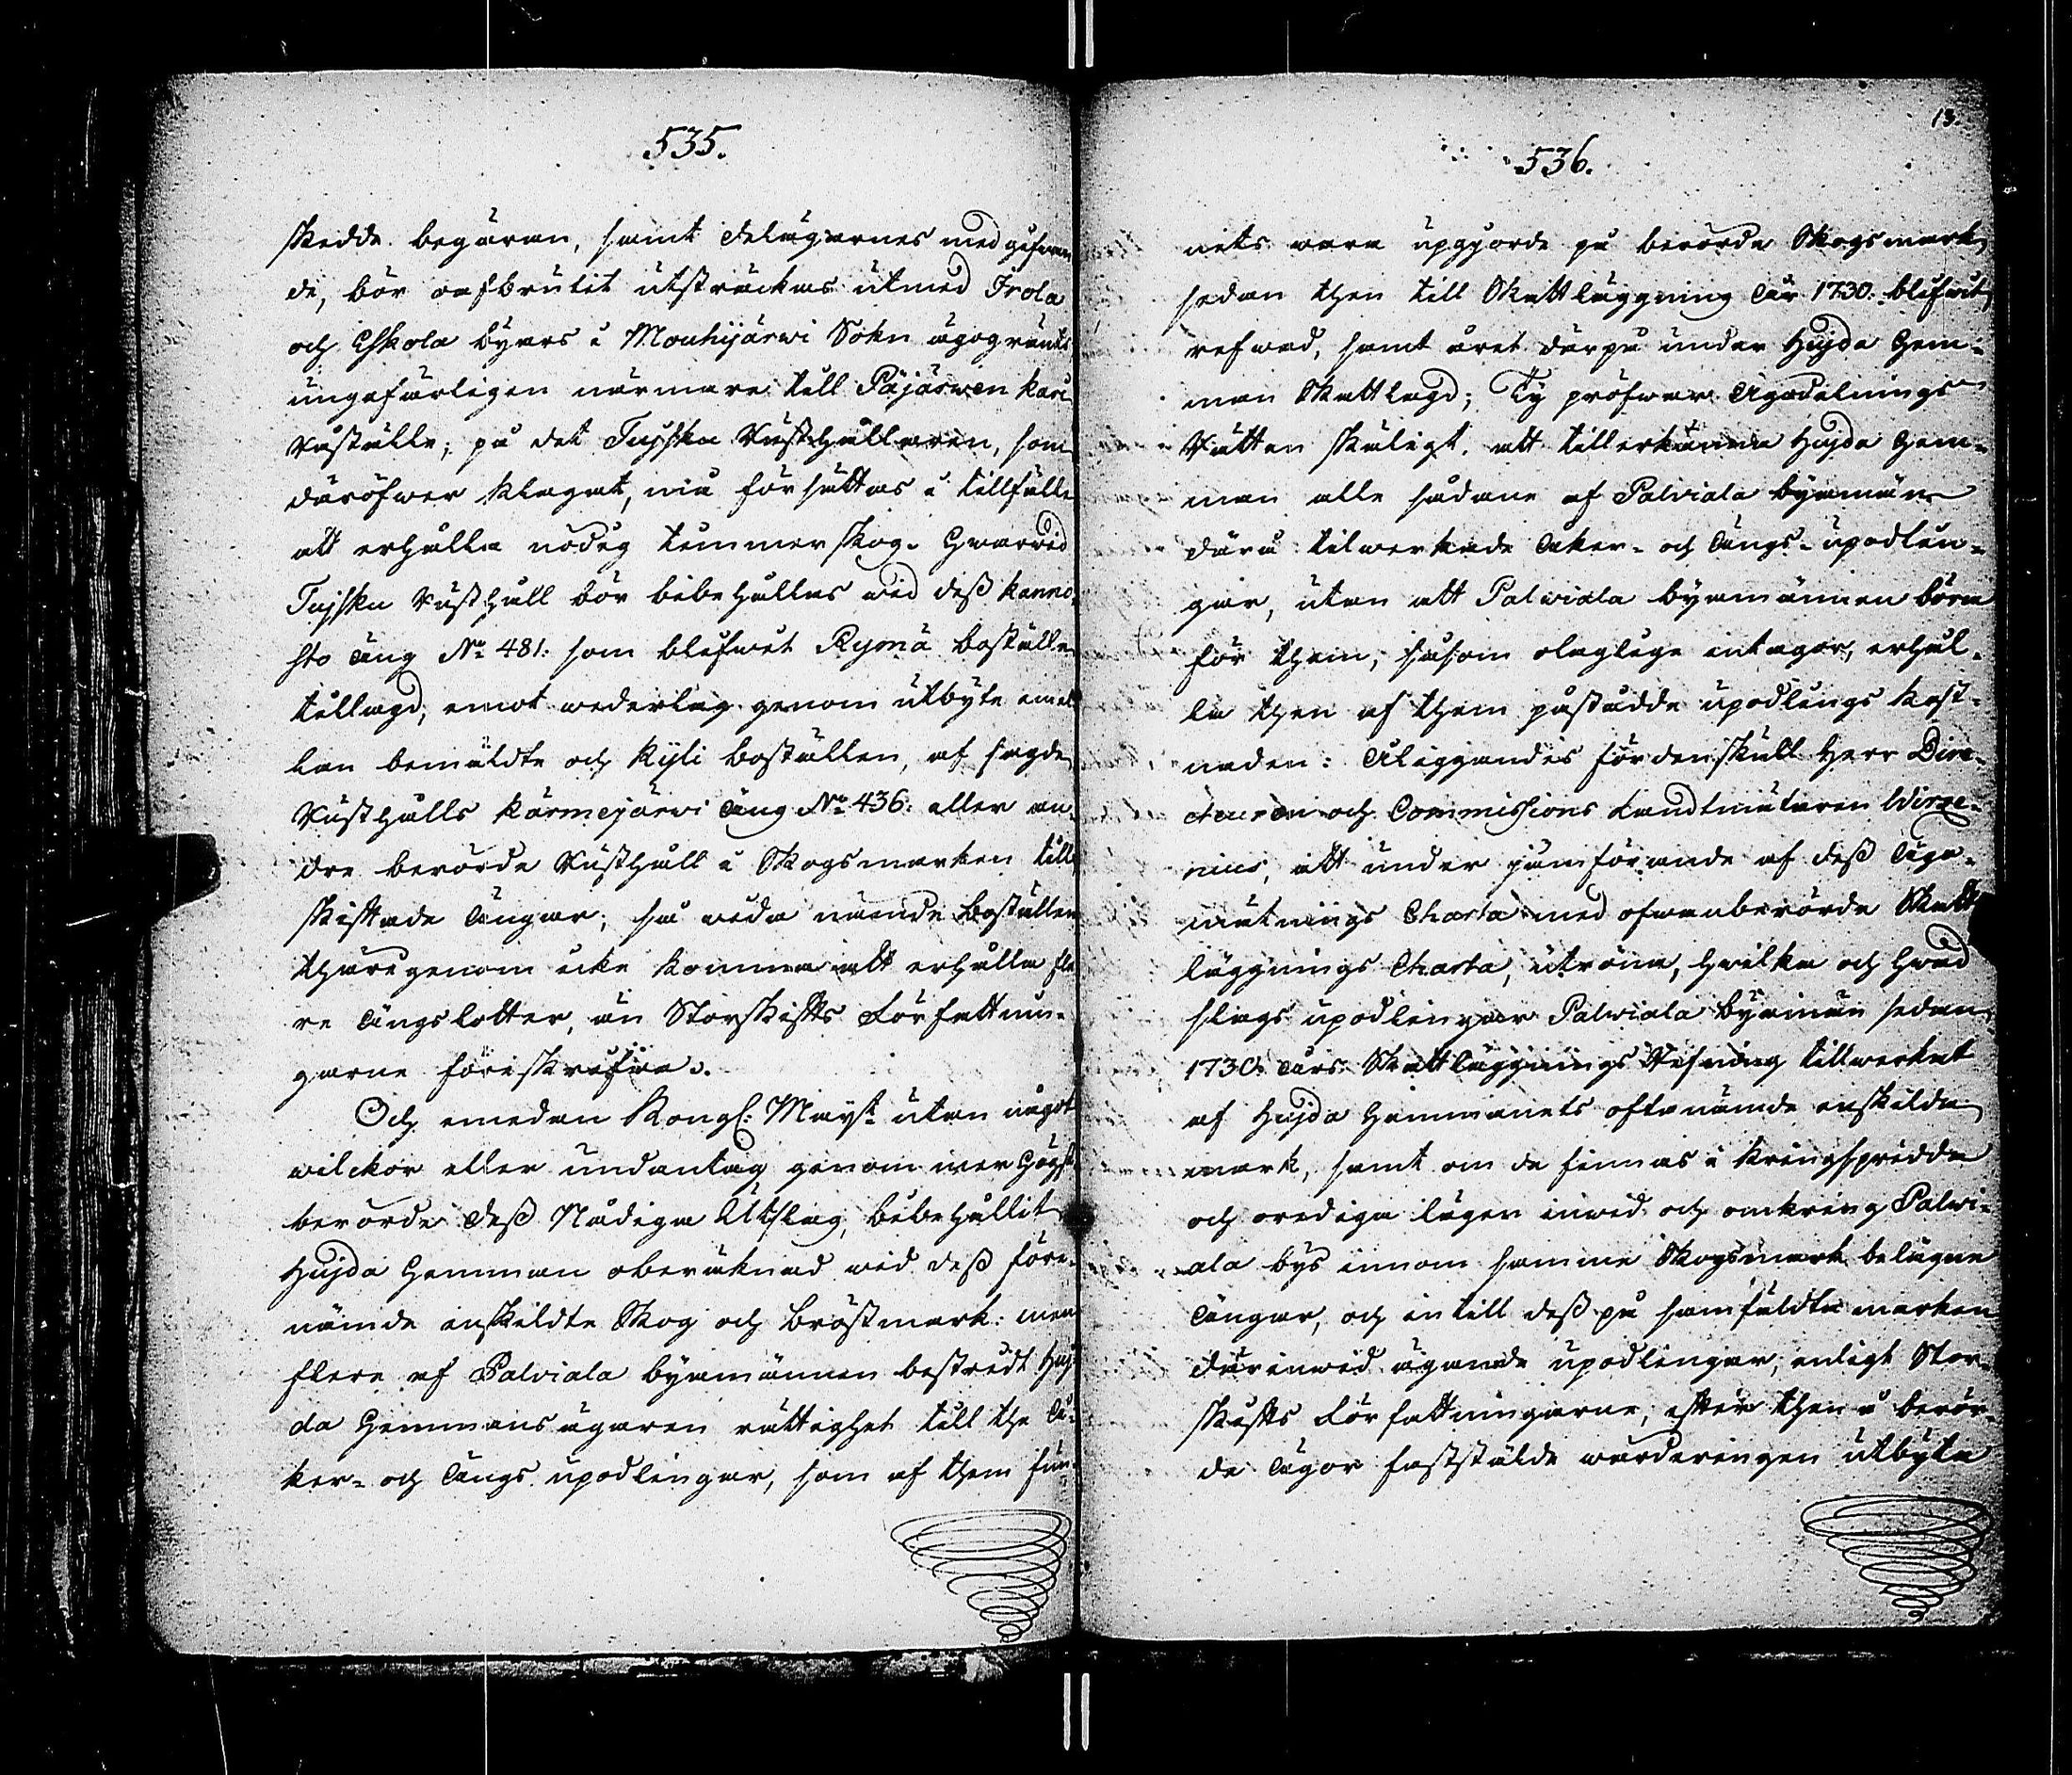 535.
skedde begäran, samt delägarnes medgifwan
de, bör oafbrutit utsträckas utmed Irola
och Eskola byars i Mouhijärwi Sokn ägogränts
ungefärligen närmare till Päjärwen kari
Råställe; på det Tujsku Rusthållaren, som
däröfwer klagat, må försättas i tillfälle
att erhålla nödig timmerskog. Hwarwid
Tujsku Rusthåll bör bibehållas wid dess kanno,
sto äng No 481: som blifwit Rymä boställe
tillagd, emot wederlag genom utbyte emel
lan bemäldte och Kyli boställen, af sagde
Rusthålls Kärmejärwi äng No 436: eller an-
dre berörde Rusthåll i Skogsmarken till
skiftade ängar; så wida nämde boställen
thärigenom icke komma att erhålla fle
re ängslotter, än Storskifts Författnin-
garne föreskrifwa.
Och emedan Kongl: Mayst utan något
wilckor eller undantag genom merhögst
berörde dess Nådiga Utslag, bibehållit
Hujda Hemman oberäknad wid dess före-
nämde enskildte Skog och bröstmark: men
flere af Palviala byamännen bestridt Huj
da Hemmansägaren rättighet till the å-
ker- och ängs upodlingar, som af them fun-
13.
536.
nits wara upgjorde på berörde Skogsmark,
sedan then till Skattläggning år 1730. blifwit
refwad, samt året därpå under Hujda Hem-
man Skattlagd; Ty pröfwar Ägodelnings
Rätten skäligt, att tillerkänna Hujda Hem-
man alle sådane af Palviala byamän
därå tilwerkade åker- och ängs-upodlin-
gar, utan att Palwiala byamännen böra
för them, såsom olaglige intagor, erhål-
la then af them påstådde upodlings kost-
naden: Åliggandes fördenskull Herr Dire-
cteuren och Commissions Landtmätaren Wirze-
nius, att under jämförande af dess Äga-
mätnings Charta med ofwanberörde Skatt
läggnings Charta, utröna, hwilka och hwad
slags upodlingar Palwiala byamän sedan
1730. års Skattläggnings Refning tillwerkat
af Hujda Hemmanets oftanämde enskilda
mark, samt om de finnas i kringspridda
och orediga lägen inwid och omkring Palwi-
ala bys innom samme Skogsmark belägne
ängar, och in till dess på samfäldta marken
därinwid ägande upodlingar, enligt Stor-
skifts Författningarne, efter then å berör-
de ägor faststälde wärderingen utbyta